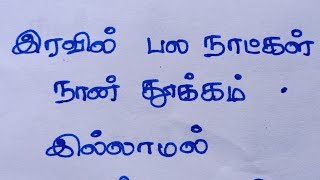 இரவில் பல நாட்கள்
நான் தூக்கம்
இல்லாமல்